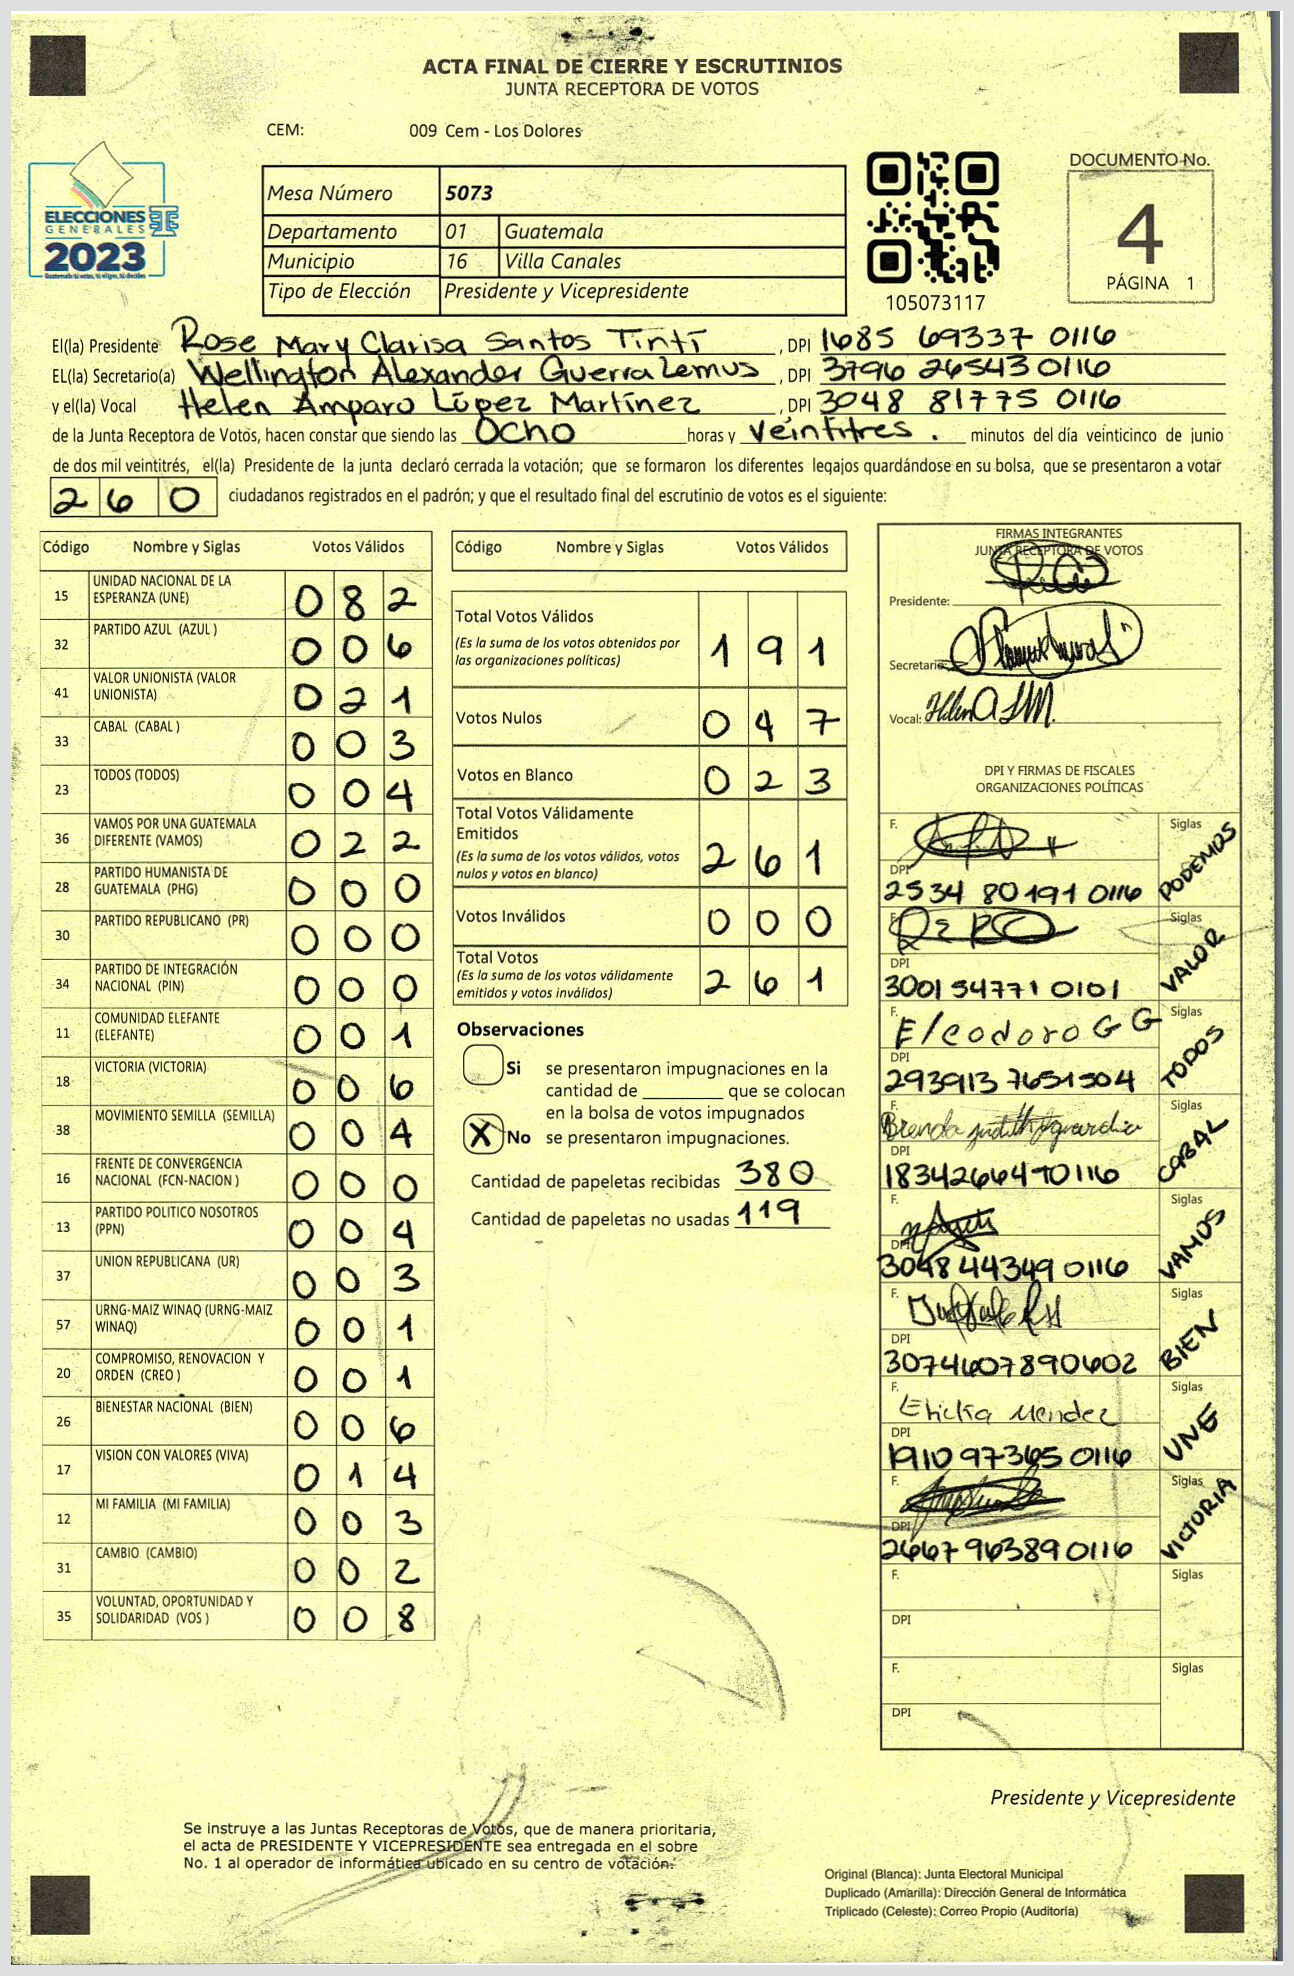 ACTA FINAL DE CIERRE Y ESCRUTINIOS
JUNTA RECEPTORA DE VOTOS
CEM: 009 Cem - Los Dolores
ELECCIONES
GENERALES
2023
Guatemala tú votas, tú eliges, tú decides
Mesa Número 5073
Departamento 01 Guatemala
Municipio 16 Villa Canales
Tipo de Elección Presidente y Vicepresidente
105073117
DOCUMENTO No.
4
PÁGINA 1
El(la) Presidente Rose Mary Clarisa Santos Tintí , DPI 1685 69337 0116
EL(la) Secretario(a) Wellington Alexander Guerra Lemus , DPI 3796 26543 0116
y el(la) Vocal Helen Amparo López Martínez , DPI 3048 81775 0116
de la Junta Receptora de Votos, hacen constar que siendo las Ocho horas y veintitres . minutos del día veinticinco de junio
de dos mil veintitrés, el(la) Presidente de la junta declaró cerrada la votación; que se formaron los diferentes legajos guardándose en su bolsa, que se presentaron a votar
260 ciudadanos registrados en el padrón; y que el resultado final del escrutinio de votos es el siguiente:
Código Nombre y Siglas Votos Válidos
15 UNIDAD NACIONAL DE LA ESPERANZA (UNE) 082
32 PARTIDO AZUL (AZUL ) 006
41 VALOR UNIONISTA (VALOR UNIONISTA) 021
33 CABAL (CABAL ) 003
23 TODOS (TODOS) 004
36 VAMOS POR UNA GUATEMALA DIFERENTE (VAMOS) 022
28 PARTIDO HUMANISTA DE GUATEMALA (PHG) 000
30 PARTIDO REPUBLICANO (PR) 000
34 PARTIDO DE INTEGRACIÓN NACIONAL (PIN) 000
11 COMUNIDAD ELEFANTE (ELEFANTE) 001
18 VICTORIA (VICTORIA) 006
38 MOVIMIENTO SEMILLA (SEMILLA) 004
16 FRENTE DE CONVERGENCIA NACIONAL (FCN-NACION ) 000
13 PARTIDO POLITICO NOSOTROS (PPN) 004
37 UNION REPUBLICANA (UR) 003
57 URNG-MAIZ WINAQ (URNG-MAIZ WINAQ) 001
20 COMPROMISO, RENOVACION Y ORDEN (CREO ) 001
26 BIENESTAR NACIONAL (BIEN) 006
17 VISION CON VALORES (VIVA) 014
12 MI FAMILIA (MI FAMILIA) 003
31 CAMBIO (CAMBIO) 002
35 VOLUNTAD, OPORTUNIDAD Y SOLIDARIDAD (VOS ) 008
Código Nombre y Siglas Votos Válidos
Total Votos Válidos 191
(Es la suma de los votos obtenidos por
las organizaciones políticas)
Votos Nulos 047
Votos en Blanco 023
Total Votos Válidamente
Emitidos 261
(Es la suma de los votos válidos, votos
nulos y votos en blanco)
Votos Inválidos 000
Total Votos 261
(Es la suma de los votos válidamente
emitidos y votos inválidos)
Observaciones
Si se presentaron impugnaciones en la
cantidad de ________ que se colocan
en la bolsa de votos impugnados
X No se presentaron impugnaciones.
Cantidad de papeletas recibidas 380
Cantidad de papeletas no usadas 119
FIRMAS INTEGRANTES
JUNTA RECEPTORA DE VOTOS
Presidente:
Secretario:
Vocal: Helen
DPI Y FIRMAS DE FISCALES
ORGANIZACIONES POLÍTICAS
F. Siglas PODEMOS
DPI
2534 80191 0116
F. Siglas VALOR
DPI
3001 54771 0101
F. Elcodoro G G Siglas TODOS
DPI
293913 7651504
F. Brenda Judith Siglas CABAL
DPI
1834266470116
F. Siglas VAMOS
DPI
3048 44349 0116
F. Siglas BIEN
DPI
3074607890602
F. Ericka Mendez Siglas UNE
DPI
1910 97365 0116
F. Siglas VICTORIA
DPI
2667963890116
F. Siglas
DPI
F. Siglas
DPI
Presidente y Vicepresidente
Se instruye a las Juntas Receptoras de Votos, que de manera prioritaria,
el acta de PRESIDENTE Y VICEPRESIDENTE sea entregada en el sobre
No. 1 al operador de informática ubicado en su centro de votación.
Original (Blanca): Junta Electoral Municipal
Duplicado (Amarilla): Dirección General de Informática
Triplicado (Celeste): Correo Propio (Auditoría)